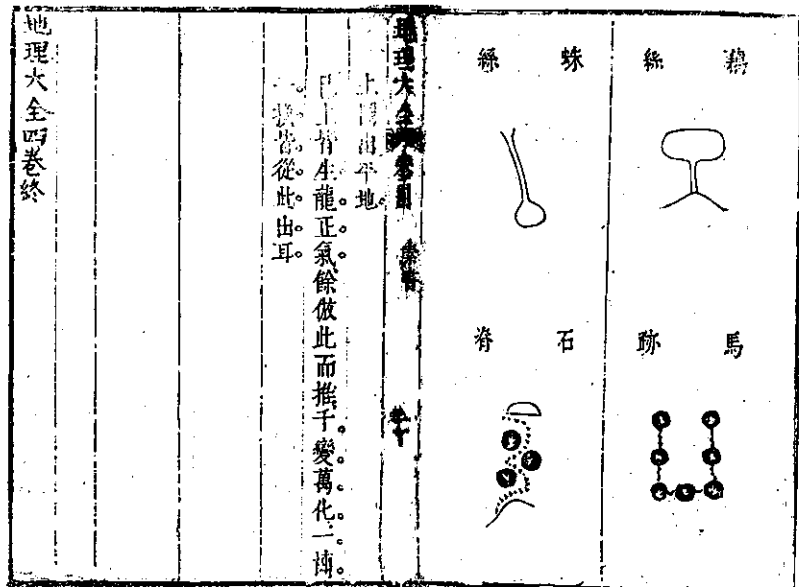 藕絲
蛛絲
馬跡
石脊
地理大全
上圖出平地。
已上皆生龍正氣。餘倣此而推。千變萬化。一博
一換。皆從此出耳。
地理大全四卷終